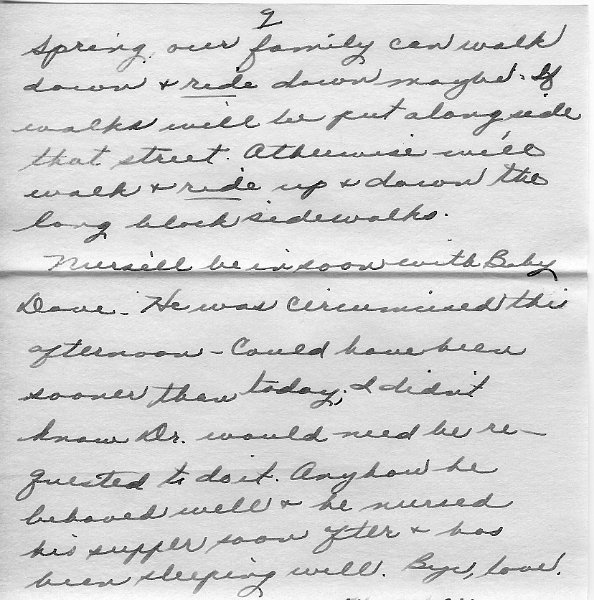 9
spring, our family can walk
down & ride down maybe. If
walks will be put alongside
that street. Otherwise we'll
walk & ride up & down the
long block sidewalks.
Nurse'll be in soon with Baby
Dave. He was circumcised this
afternoon - Could have been
sooner than today, I didn't
know Dr. would need be re-
quested to do it. Anyhow he
behaved well & he nursed
his supper soon after & has
been sleeping well. Bye, love.